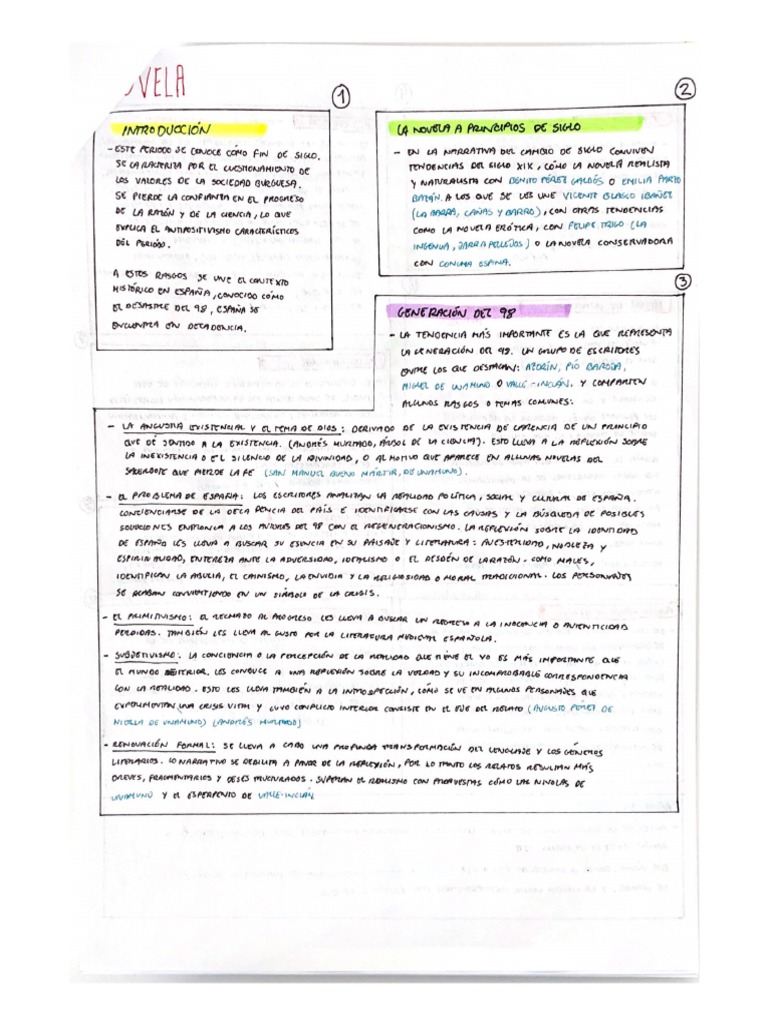 OVELA
1
INTRODUCCIÓN
- ESTE PERIODO SE CONOCE CÓMO FIN DE SIGLO.
SE CARACTERIZA POR EL CUESTIONAMIENTO DE
LOS VALORES DE LA SOCIEDAD BURGUESA.
SE PIERDE LA CONFIANZA EN EL PROGRESO
DE LA RAZÓN Y DE LA CIENCIA, LO QUE
EXPLICA EL ANTIPOSITIVISMO CARACTERÍSTICOS
DEL PERÍODO.
A ESTOS RASGOS SE UNE EL CONTEXTO
HISTÓRICO EN ESPAÑA, CONOCIDO CÓMO
EL DESASTRE DEL 98, ESPAÑA SE
ENCUENTRA EN DECADENCIA.
2
LA NOVELA A PRINCIPIOS DE SIGLO
- EN LA NARRATIVA DEL CAMBIO DE SIGLO CONVIVEN
TENDENCIAS DEL SIGLO XIX, CÓMO LA NOVELA REALISTA
Y NATURALISTA CON BENITO PÉREZ GALDÓS O EMILIA PARDO
BAZÁN. A LOS QUE SE LES UNE VICENTE BLASCO IBAÑEZ
(LA BARRA, CAÑAS Y BARRO), CON OTRAS TENDENCIAS
COMO LA NOVELA ERÓTICA, CON FELIPE TRIGO (LA
INGENUA, JARRAPELLEJOS) O LA NOVELA CONSERVADORA
CON CONCHA ESPINA.
3
GENERACIÓN DEL 98
- LA TENDENCIA MÁS IMPORTANTE ES LA QUE REPRESENTA
LA GENERACIÓN DEL 98. UN GRUPO DE ESCRITORES
ENTRE LOS QUE DESTACAN: AZORÍN, PÍO BAROJA,
MIGUEL DE UNAMUNO O VALLE-INCLÁN. Y COMPARTEN
ALGUNOS RASGOS O TEMAS COMUNES:
- LA ANGUSTIA EXISTENCIAL Y EL TEMA DE DIOS: DERIVADO DE LA EXISTENCIA DE CARENCIA DE UN PRINCIPIO
QUE DÉ SENTIDO A LA EXISTENCIA. (ANDRÉS HURTADO, ÁRBOL DE LA CIENCIA). ESTO LLEVA A LA REFLEXIÓN SOBRE
LA INEXISTENCIA O EL SILENCIO DE LA DIVINIDAD, O AL MOTIVO QUE APARECE EN ALGUNAS NOVELAS DEL
SACERDOTE QUE PIERDE LA FE (SAN MANUEL BUENO MÁRTIR, DE UNAMUNO).
- EL PROBLEMA DE ESPAÑA: LOS ESCRITORES ANALIZAN LA REALIDAD POLÍTICA, SOCIAL Y CULTURAL DE ESPAÑA.
CONCIENCIARSE DE LA DECADENCIA DEL PAÍS E IDENTIFICARSE CON LAS CAUSAS Y LA BÚSQUEDA DE POSIBLES
SOLUCIONES ENTRONCA A LOS AUTORES DEL 98 CON EL REGENERACIONISMO. LA REFLEXIÓN SOBRE LA IDENTIDAD
DE ESPAÑO LES LLEVA A BUSCAR SU ESENCIA EN SU PAISAJE Y LITERATURA: AUSTERIDAD, NOBLEZA Y
ESPIRITUALIDAD, ENTEREZA ANTE LA ADVERSIDAD, IDEALISMO O EL DESDÉN DE LA RAZÓN. COMO MALES,
IDENTIFICAN LA ABULIA, EL CAINISMO, LA ENVIDIA Y LA RELIGIOSIDAD O MORAL TRADICIONAL. LOS PERSONAJES
SE ACABAN CONVIRTIENDO EN UN SÍMBOLO DE LA CRISIS.
- EL PRIMITIVISMO: EL RECHAZO AL PROGRESO LES LLEVA A BUSCAR UN REGRESO A LA INOCENCIA O AUTENTICIDAD
PERDIDAS. TAMBIÉN LES LLEVA AL GUSTO POR LA LITERATURA MEDIEVAL ESPAÑOLA.
- SUBJETIVISMO: LA CONCIENCIA O LA PERCEPCIÓN DE LA REALIDAD QUE TIENE EL YO ES MÁS IMPORTANTE QUE
EL MUNDO EXTERIOR. LES CONDUCE A UNA REFLEXIÓN SOBRE LA VERDAD Y SU INCOMPROBABLE CORRESPONDENCIA
CON LA REALIDAD. ESTO LES LLEVA TAMBIÉN A LA INTROSPECCIÓN, CÓMO SE VE EN ALGUNOS PERSONAJES QUE
EXPERIMENTAN UNA CRISIS VITAL Y CUYO CONFLICTO INTERIOR CONSISTE EN EL EJE DEL RELATO (AUGUSTO PÉREZ DE
NIEBLA DE UNAMUNO) (ANDRÉS HURTADO)
- RENOVACIÓN FORMAL: SE LLEVA A CABO UNA PROFUNDA TRANSFORMACIÓN DEL LENGUAJE Y LOS GÉNEROS
LITERARIOS. LO NARRATIVO SE DEBILITA A FAVOR DE LA REFLEXIÓN, POR LO TANTO LOS RELATOS RESULTAN MÁS
BREVES, FRAGMENTARIOS Y DESESTRUCTURADOS. SUPERAN EL REALISMO CON PROPUESTAS CÓMO LAS NIVOLAS DE
UNAMUNO Y EL ESPERPENTO DE VALLE-INCLÁN